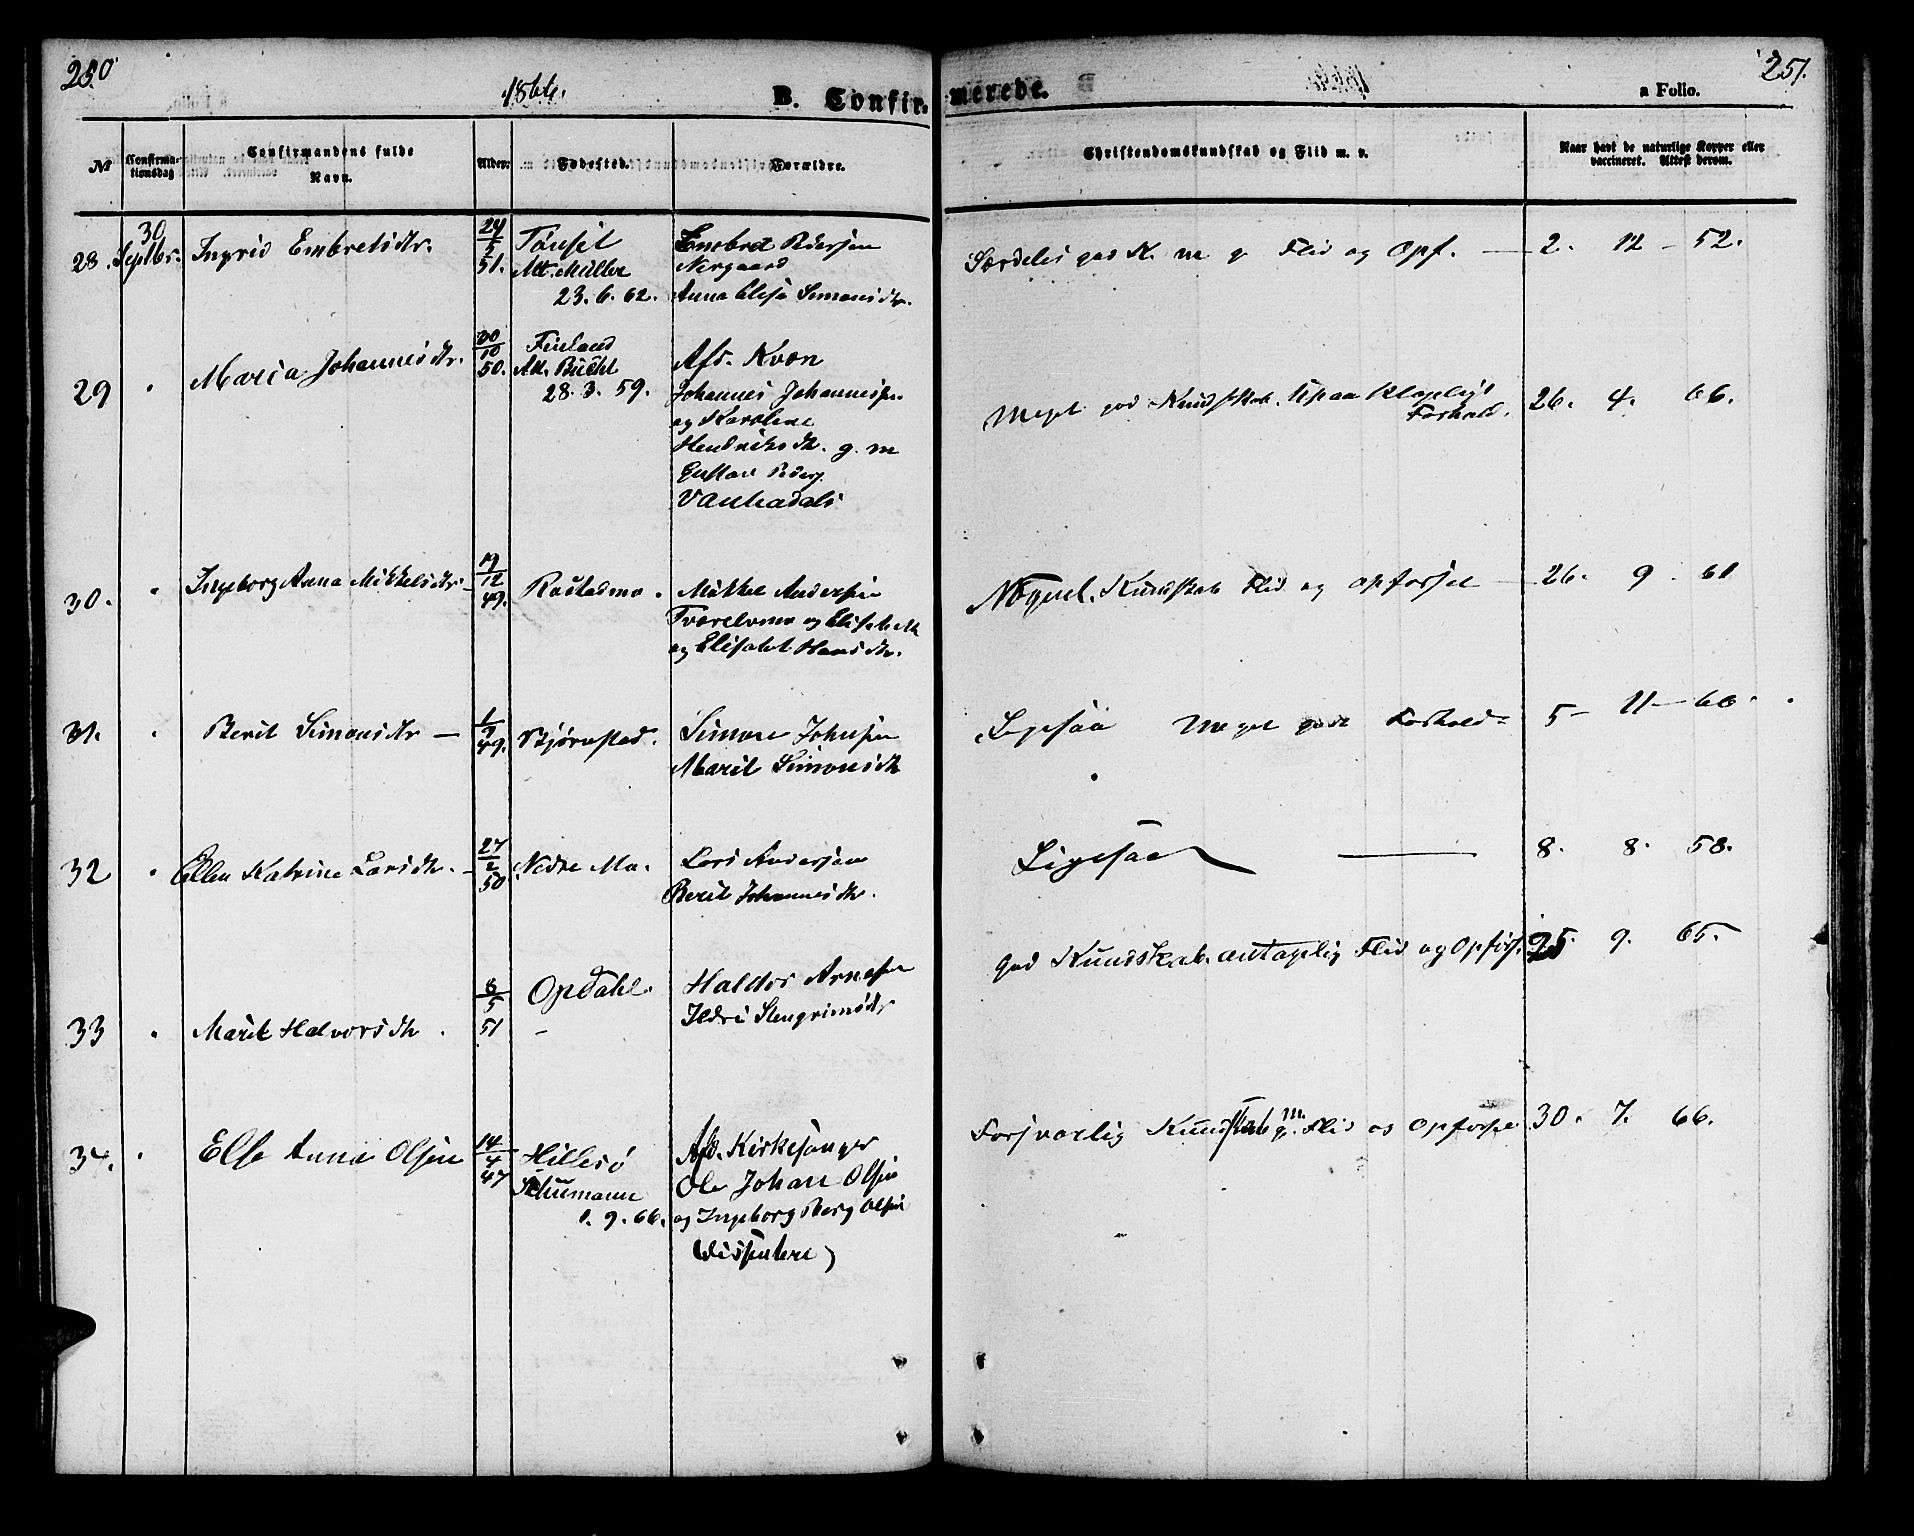 250
251.
1866.
B. Confirmerede.
a Folio.
№
Confirmationsdag
Confirmandens fulde Navn.
Alder.
Fødested.
Forældre.
Christendomskundskab og Flid m. v.
Naar havt de naturlige Kopper eller vaccineret. Attest derom.
28. 30 Septbr. Ingrid Embretsdtr. 24/5 51. Tønset
Att. Müller
23. 6. 62.
Embret Pedersen
Nergaard
Anna Elisa Simonsdtr.
Særdeles god K. m g. Flid og Opf. — 2. 12 – 52.
29 " Maria Johannesdtr. 30/10 50. Finland
Att. Bucht
28. 3. 59.
Afd. Kvæn
Johannes Johannesen
og Karoline
Hendriksdtr. g. m
Gustav Peders.
Vanhadals
Meget god Kundskab. Upaaklageligt
Forhold. 26. 4. 66.
30. " Ingeborg Anna Mikkelsdtr 19/12 49. Rostadmo.
Mikkel Andersen
Tværelvmo og Elisabeth
og Elisabet Hansdtr.
Nøgved. Kundskab Flid og opførsel — 26. 9. 61
31. " Berit Simonsdtr — 1/9 49. Bjørnstad.
Simon Johnsen
Marit Simonsdtr
Ligesaa Meget godt Forhold. 5 – 11 – 66.
32 " Ellen Katrine Larsdtr. – 27/2 50 Nedre Mo.
Lars Andersen
Berit Johannesdtr.
Ligesaa — 8. 8. 58.
33 " Marit Halvorsdtr. 8/5 51 Opdahl.
Haldor Arnesen
Ildri Stengrimsdtr
god Kundskab. antagelig Flid og Opførs. 25. 9. 65.
34. " Else Anna Olsen 14/4 47 Hillesø
Schumann
1. 9. 66.
Afd. Kirkesanger
Ole Johan Olsen
og Ingeborg Berg Olsen
Forsvarlig Kundskab m. g. Flid og Opførsel 30. 7. 66.